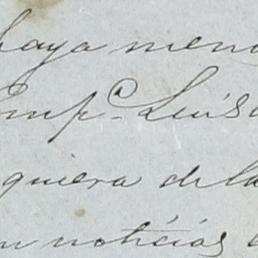 haya men
Emp.ª Luis
quiera de la
n noticias